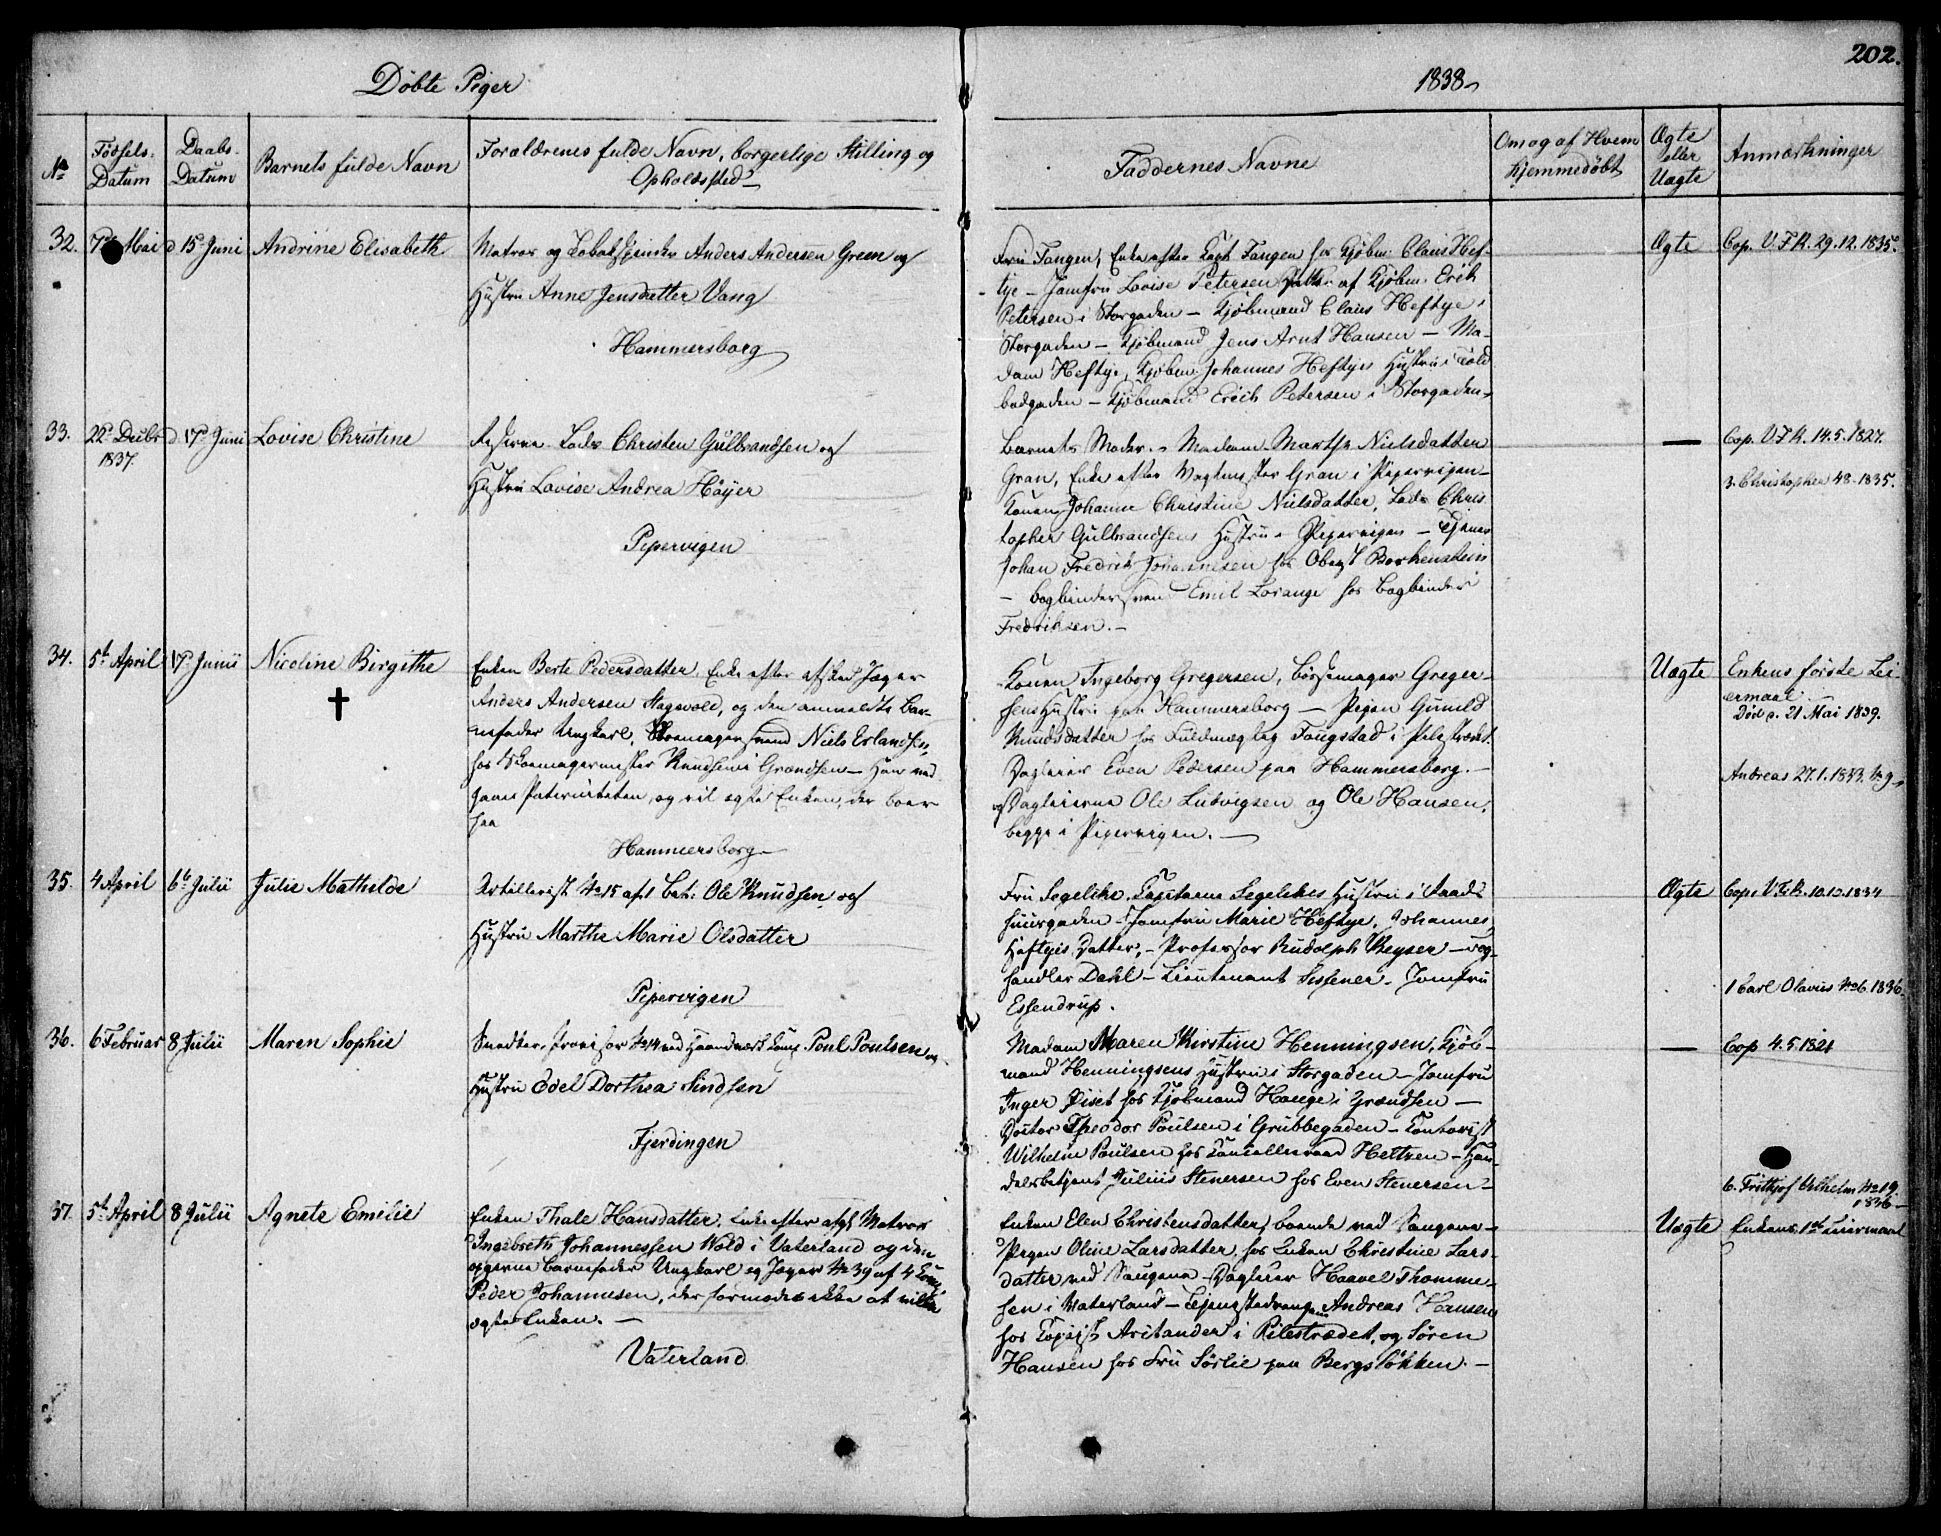 202.
Døbte Piger
1838
No
Fødsels-
Datum
Daabs-
Datum
Barnets fulde Navn
Forældrenes fulde Navn, borgerlige Stilling og
Opholdssted
Faddernes Navne
Om og af Hvem
hjemmedøbt
Ægte
eller
Uægte
Anmærkninger
32. 7de Mai d 15 Juni Andrine Elisabeth
Matros og Tobakspinder Anders Andersen Green og
Hustru Anne Jensdatter Vang
Hammersborg
Fru Fangen, Enke efter Capt Fangen hos Kjøbm. Claus Hef-
tye - Jomfru Lovise Petersen Datter af Kjøbm. Erik
Petersen i Storgaden - Kjøbmand Claus Heftye i
Storgaden - Kjøbmand Jens Arnt Hansen - Ma-
dam Heftye, Kjøbm. Johannes Heftyes Hustru i Told
bodgaden - Kjøbmand Erich Petersen i Storgaden
Ægte
Cop. V.F.K. 29.12.1835.
33. 22 Decbr 1837. d 17 Juni Lovise Christine
Christen Gulbrandsen og
Hustru Lovise Andrea Høyer
Pepervigen
Barnets Moder. - Madam Marthe Nielsdatter
Gran, Enke efter Vagtmester Gran i Pepervigen
Konen Johanne Christine Nielsdatter, Chris
topher Gulbrandsens Hustru i Pepervigen - Tjener
Johan Fredrik Johannesen hos Oberst Berkenstein
- Bogbindersvend Emil Lorange hos Bogbinder
Fredriksen. -
—
Cop. V.F.K. 14.5.1827.
3. Christopher 48-1835.
34. 5t April 17 Junii Nicoline Birgithe
†
Enken Berte Pedersdatter, Enke efter afsked Jæger
Anders Andersen Stagsvold, og den anmeldte Bar-
nefader Ungkarl, Skomagersvend Niels Erlandsen,
hos Skomagermester Knudsen i Grændsen - Han ved
Paterniteten, og vil egte Enken, der boer
paa
Hammersborg
Konen Ingeborg Gregersen, Børsemager Greger-
sens Hustru paa Hammersborg - Pigen Gunild
Knudsdatter hos Fuldmægtig Fougstad i Pilestrædet
Dagleier Even Pedersen paa Hammersborg. -
og Dagleierne Ole Ludvigsen og Ole Hansen,
begge i Pipervigen. -
Uægte
Enkens første Lei-
ermaal
Død c. 21 Mai 1839.
Andreas 27.1.1833. No 9
35. 4 April 6te Julii Julie Mathilde
Artillerist No 15 af 1 Bat: Ole Knudsen og
Hustru Marthe Marie Olsdatter
Pipervigen
Fru Segelike, Capitaine Segelckes Hustru i Raad-
huusgaden - Jomfru Marie Heftye, Johannes
Heftyes Datter, - Professor Rudolph Keyser - Bog-
handler Dahl - Lieutenant Sissener - Jomfru
Essendrup.
Ægte
Cop. V.F.K. 10.12.1834
1 Carl Olavus No 6. 1836.
36. 6 Februar 8 Julii Maren Sophie
Poul Poulsen og
Hustru Edel Dorthea Sindsen
Fjerdingen
Madam Maren Kirstine Henningsen, Kjøb-
mand Henningsens Hustru i Storgaden - Jomfru
Inger Qviset hos Kjøbmand Hauge i Grændsen -
Doctor Theodor Poulsen i Grubbegaden - Contorist
Wilhelm Poulsen hos Cancelliraad Heltzen - Han-
delsbetjent Julius Stenersen hos Even Stenersen
—
Cop 4.5.1821
6. Frithjof Vilhelm No 19
1836
37. 5t April 8 Julii Agnete Emilie
Enken Thale Hansdatter, Enke efter afg. Matros
Ingebreth Johannessen Wold i Vaterland og den
opgivne Barnefader Ungkarl og Jæger No 39 af 4 Comp
Peder Johannesen, der formodes ikke at ville
ægte Enken. -
Vaterland
Enken Elen Christensdatter, boende ved Saugene -
Pigen Oline Larsdatter, hos Enken Christine Lars-
datter ved Saugene - Dagleier Haavel Thomme-
sen i Vaterland - Andreas Hansen
hos Copist Aritander i Pilestrædet, og Søren
Hansen hos Fru Sørlie paa Bergsløkken. -
Uægte
Enkens 1ste Leiermaal